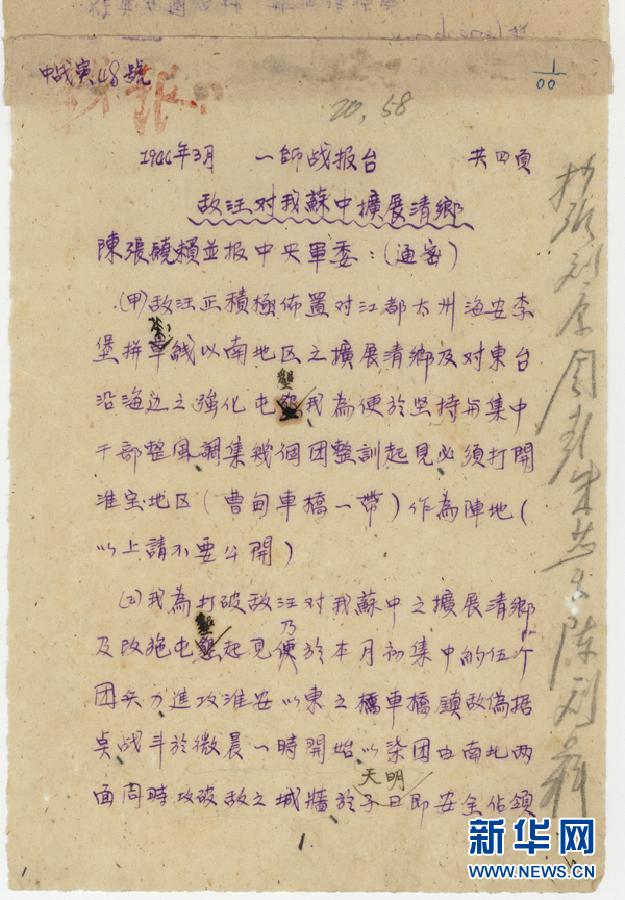 中战寅48號
1/00
20,58
1944年3月 一師战报台 共四頁
敌汪对我蘇中擴展清鄉
陳張饒賴並报中央軍委：（通密）
（甲）敌汪正積極佈置对江都太州海安李
堡拼茶綫以南地区之擴展清鄉及对東台
沿海边之強化屯墾我為便於坚持与集中
干部整風調集幾個团整訓起見必須打開
淮宝地区（曹甸車橋一帶）作為陣地（
以上請不要公開）
（乙）我為打破敌汪对我蘇中之擴展清鄉
及改施屯墾起見乃便於本月初集中的伍个
团兵力進攻淮安以東之橋車橋鎮敌偽据
點战斗於微晨一時開始以柒团由南北两
面同時攻破敌之城牆於天明即安全佔領
1
新华网
WWW.NEWS.CN